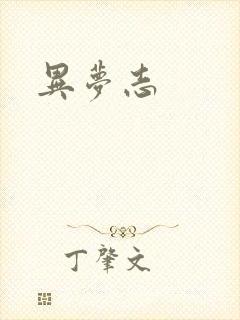 異夢志
丁肇文